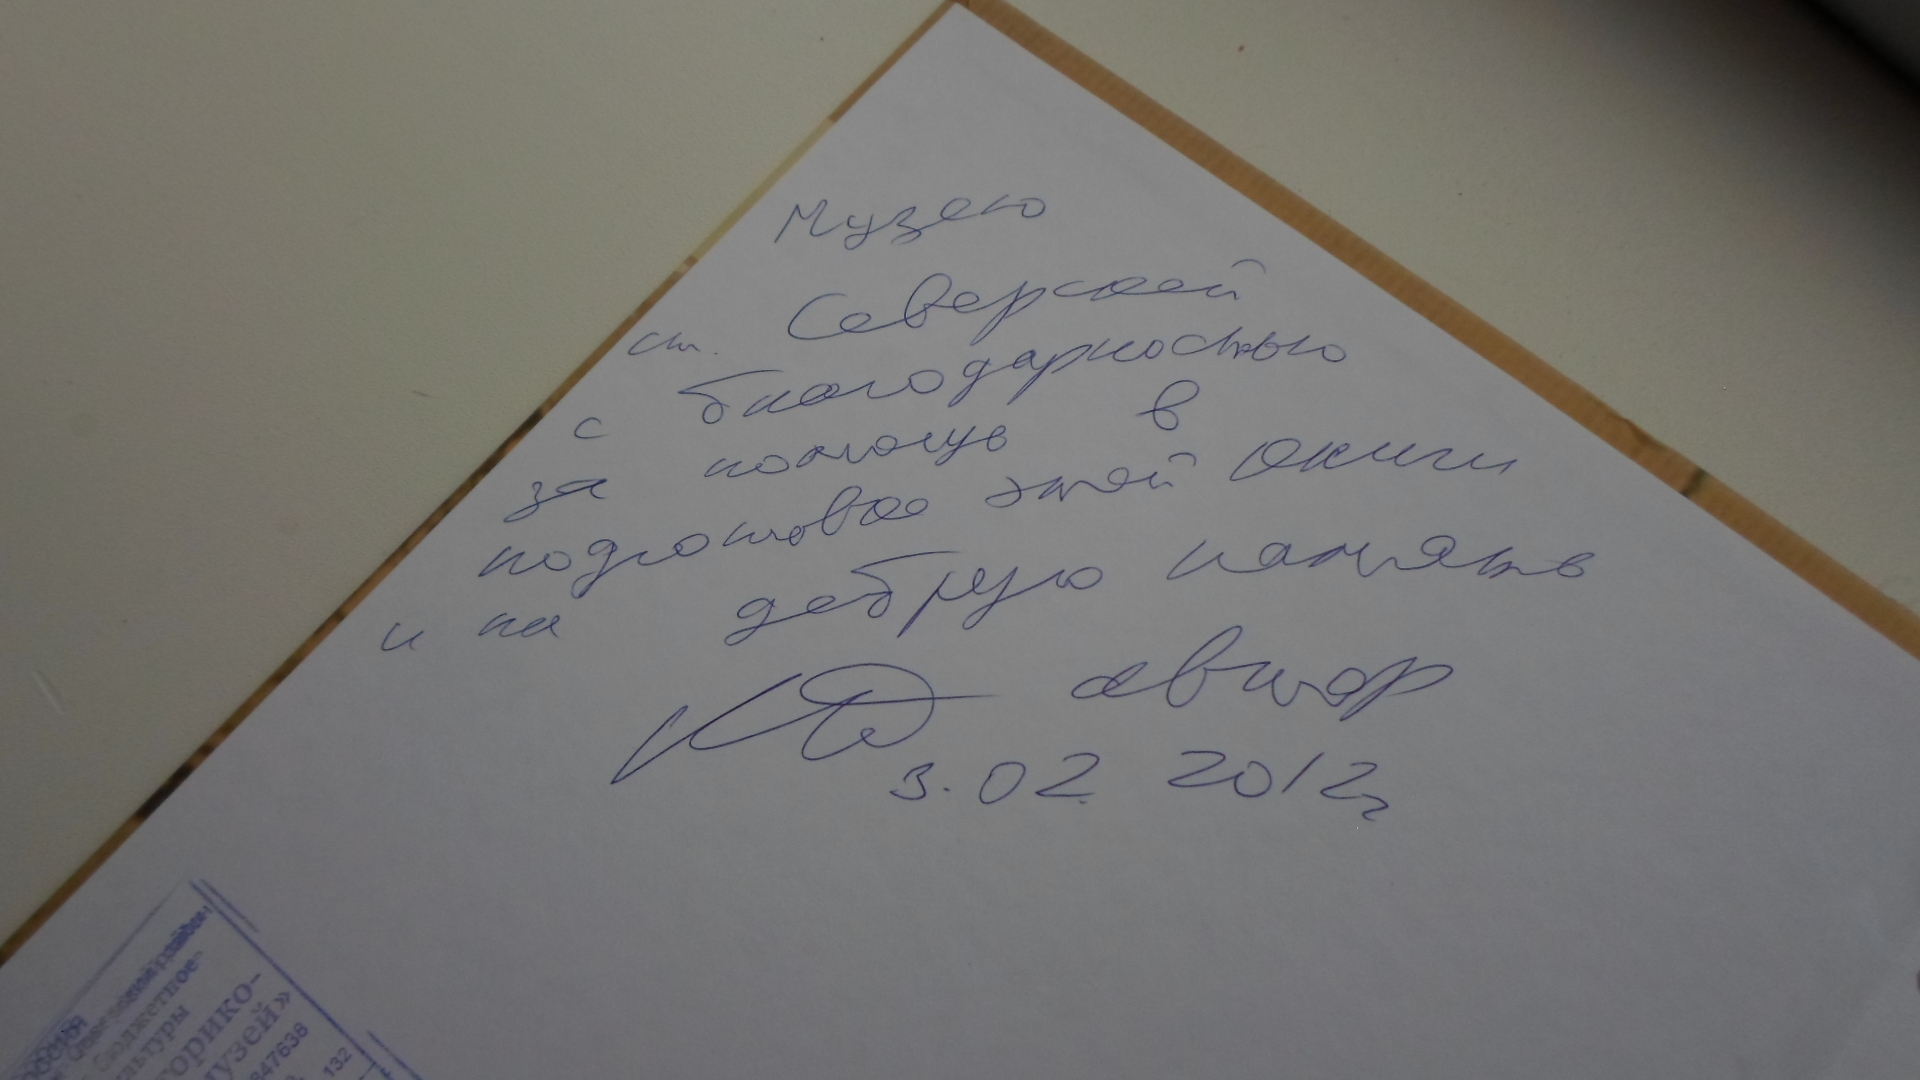 Музею
ст. Северской
с благодарностью
за помощь в
подготовке этой книги
и на добрую память
автор
3.02 2012г
бюджетное
культуры
орико-
музей»
847638
132